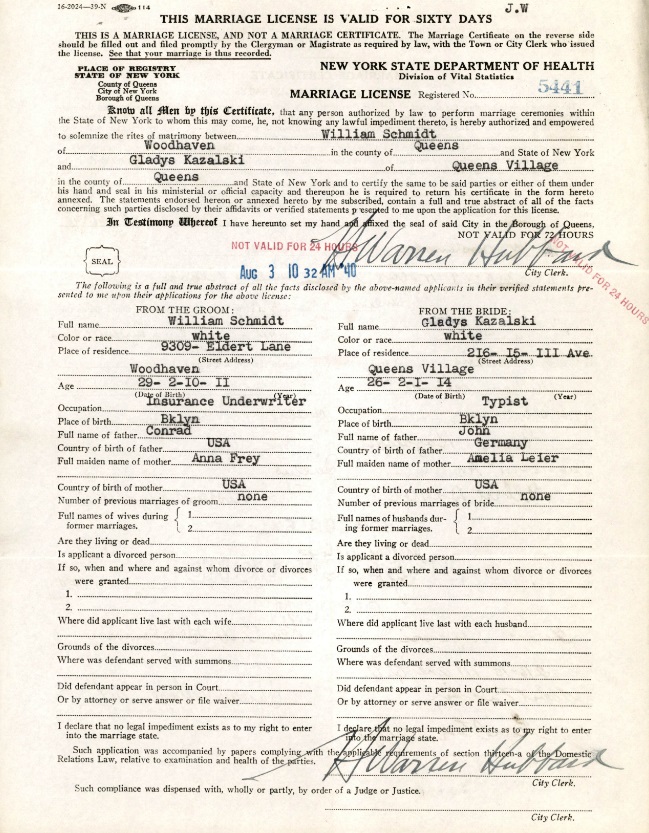 16-2024—39-N 114
J.W
THIS MARRIAGE LICENSE IS VALID FOR SIXTY DAYS
THIS IS A MARRIAGE LICENSE, AND NOT A MARRIAGE CERTIFICATE. The Marriage Certificate on the reverse side
should be filled out and filed promptly by the Clergyman or Magistrate as required by law, with the Town or City Clerk who issued
the license. See that your marriage is thus recorded.
PLACE OF REGISTRY
STATE OF NEW YORK
County of Queens
City of New York
Borough of Queens
NEW YORK STATE DEPARTMENT OF HEALTH
Division of Vital Statistics
MARRIAGE LICENSE Registered No. 5441
Know all Men by this Certificate, that any person authorized by law to perform marriage ceremonies within
the State of New York to whom this may come, he, not knowing any lawful impediment thereto, is hereby authorized and empowered
to solemnize the rites of matrimony between William Schmidt
of Woodhaven in the county of Queens and State of New York
and Gladys Kazalski of Queens Village
in the county of Queens and State of New York and to certify the same to be said parties or either of them under
his hand and seal in his ministerial or official capacity and thereupon he is required to return his certificate in the form hereto
annexed. The statements endorsed hereon or annexed hereto by me subscribed, contain a full and true abstract of all of the facts
concerning such parties disclosed by their affidavits or verified statements presented to me upon the application for this license.
In Testimony Whereof I have hereunto set my hand and affixed the seal of said City in the Borough of Queens,
NOT VALID FOR 72 HOURS
NOT VALID FOR 24 HOURS
H Warren Hubbard
NOT VALID FOR 24 HOURS
SEAL
AUG 3 10 32 AM '40
City Clerk.
The following is a full and true abstract of all the facts disclosed by the above-named applicants in their verified statements pre-
sented to me upon their applications for the above license:
FROM THE GROOM:
Full name William Schmidt
Color or race white
Place of residence 9309- Eldert Lane
(Street Address)
Woodhaven
Age 29- 2-10- 11
(Date of Birth) (Year)
Occupation Insurance Underwriter
Place of birth Bklyn
Full name of father Conrad
Country of birth of father USA
Full maiden name of mother Anna Frey
Country of birth of mother USA
Number of previous marriages of groom none
Full names of wives during
former marriages.
1
2
Are they living or dead
Is applicant a divorced person
If so, when and where and against whom divorce or divorces
were granted
1.
2.
Where did applicant live last with each wife
Grounds of the divorces
Where was defendant served with summons
Did defendant appear in person in Court
Or by attorney or serve answer or file waiver
I declare that no legal impediment exists as to my right to enter
into the marriage state.
FROM THE BRIDE:
Full name Gladys Kazalski
Color or race white
Place of residence 216- 15- III Ave
(Street Address)
Queens Village
Age 26- 2-I- 14
(Date of Birth) (Year)
Occupation Typist
Place of birth Bklyn
Full name of father John
Country of birth of father Germany
Full maiden name of mother Amelia Leier
Country of birth of mother USA
Number of previous marriages of bride none
Full names of husbands dur-
ing former marriages.
1
2
Are they living or dead
Is applicant a divorced person
If so, when and where and against whom divorce or divorces
were granted
1.
2.
Where did applicant live last with each husband
Grounds of the divorces
Where was defendant served with summons
Did defendant appear in person in Court
Or by attorney or serve answer or file waiver
I declare that no legal impediment exists as to my right to enter
into the marriage state.
Such application was accompanied by papers complying with the applicable requirements of section thirteen-a of the Domestic
Relations Law, relative to examination and health of the parties.
H Warren Hubbard
City Clerk.
Such compliance was dispensed with, wholly or partly, by order of a Judge or Justice.
City Clerk.